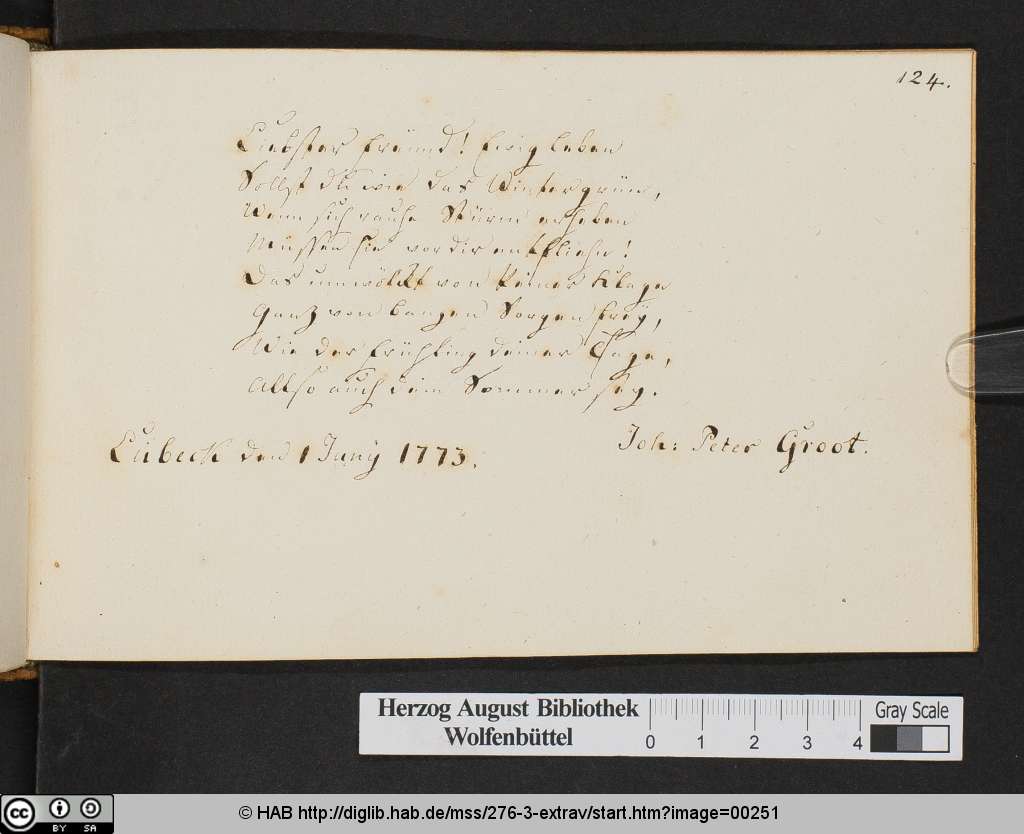 124.
Liebster Freund! Ewig leben
Sollst du wie das Wintergrün,
Wenn sich rauhe Stürm erheben
Müssen sie vor dir entfliehn!
Das umwölkt von keiner Klage
Ganz von bangen Sorgen frey,
Wie der Frühling deiner Tage,
Allso auch dein Sommer sey.
Lübeck den 1 Juny 1773.
Joh: Peter Groot.
Herzog August Bibliothek
Wolfenbüttel
0 1 2 3 4
Gray Scale
cc BY SA
© HAB http://diglib.hab.de/mss/276-3-extrav/start.htm?image=00251